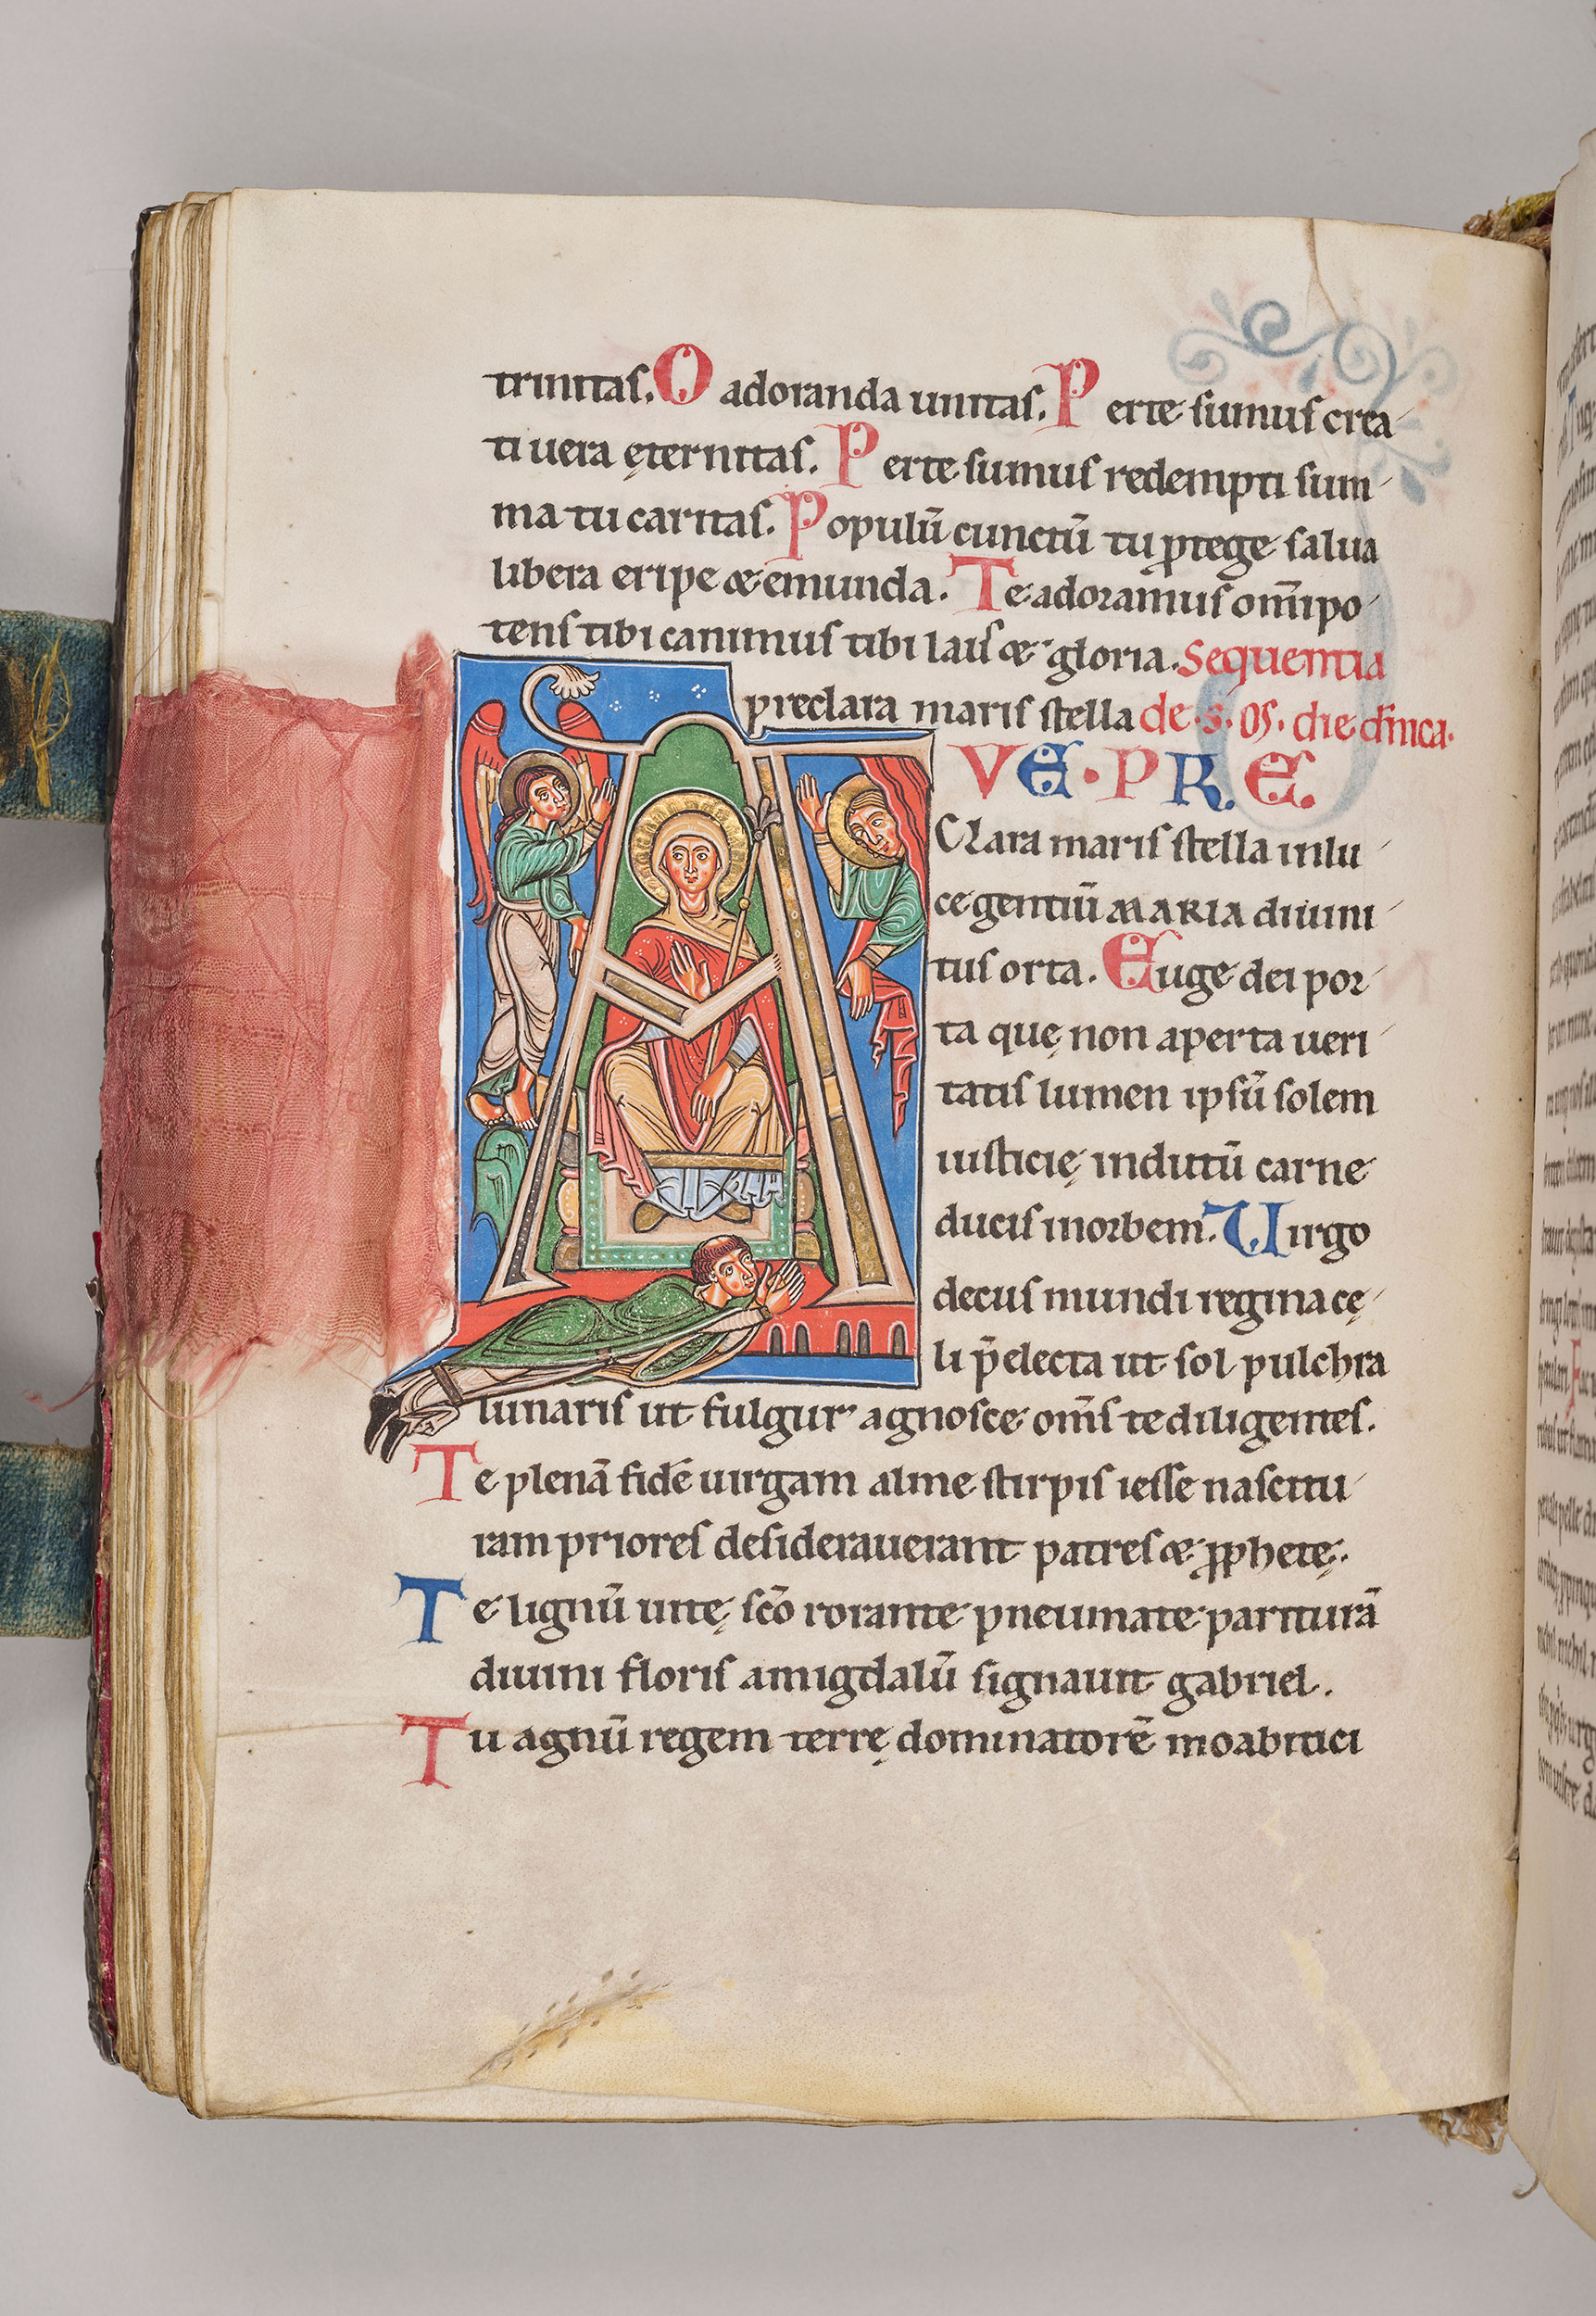 trinitas. O adoranda unitas. Per te sumus crea
ti uera ęternitas. Per te sumus redempti sum
ma tu caritas. Populū cunctū tu ꝓtege salua
libera eripe & emunda. Te adoramus om̄ipo
tens tibi canimus tibi laus & gloria. Sequentia
preclara maris stella de .s. M. die dn̄ica.
AVE. PRE
Clara maris stella in lu
ce gentiū MARIA diuini
tus orta. Euge dei por
ta quę non aperta ueri
tatis lumen ipsū solem
iusticię indutū carne
ducis inorbem. Virgo
decus mundi regina cę
li p̄electa ut sol pulchra
lunaris ut fulgur agnosce om̄s te diligentes.
Te plenā fidē uirgam alme stirpis iesse nascitu
ram priores desiderauerant patres & ꝓphetę.
Te lignū uitę sc̄o rorante pneumate pariturā
diuini floris amigdalū signauit gabriel.
Tu agnū regem terrę dominatorē moabitici